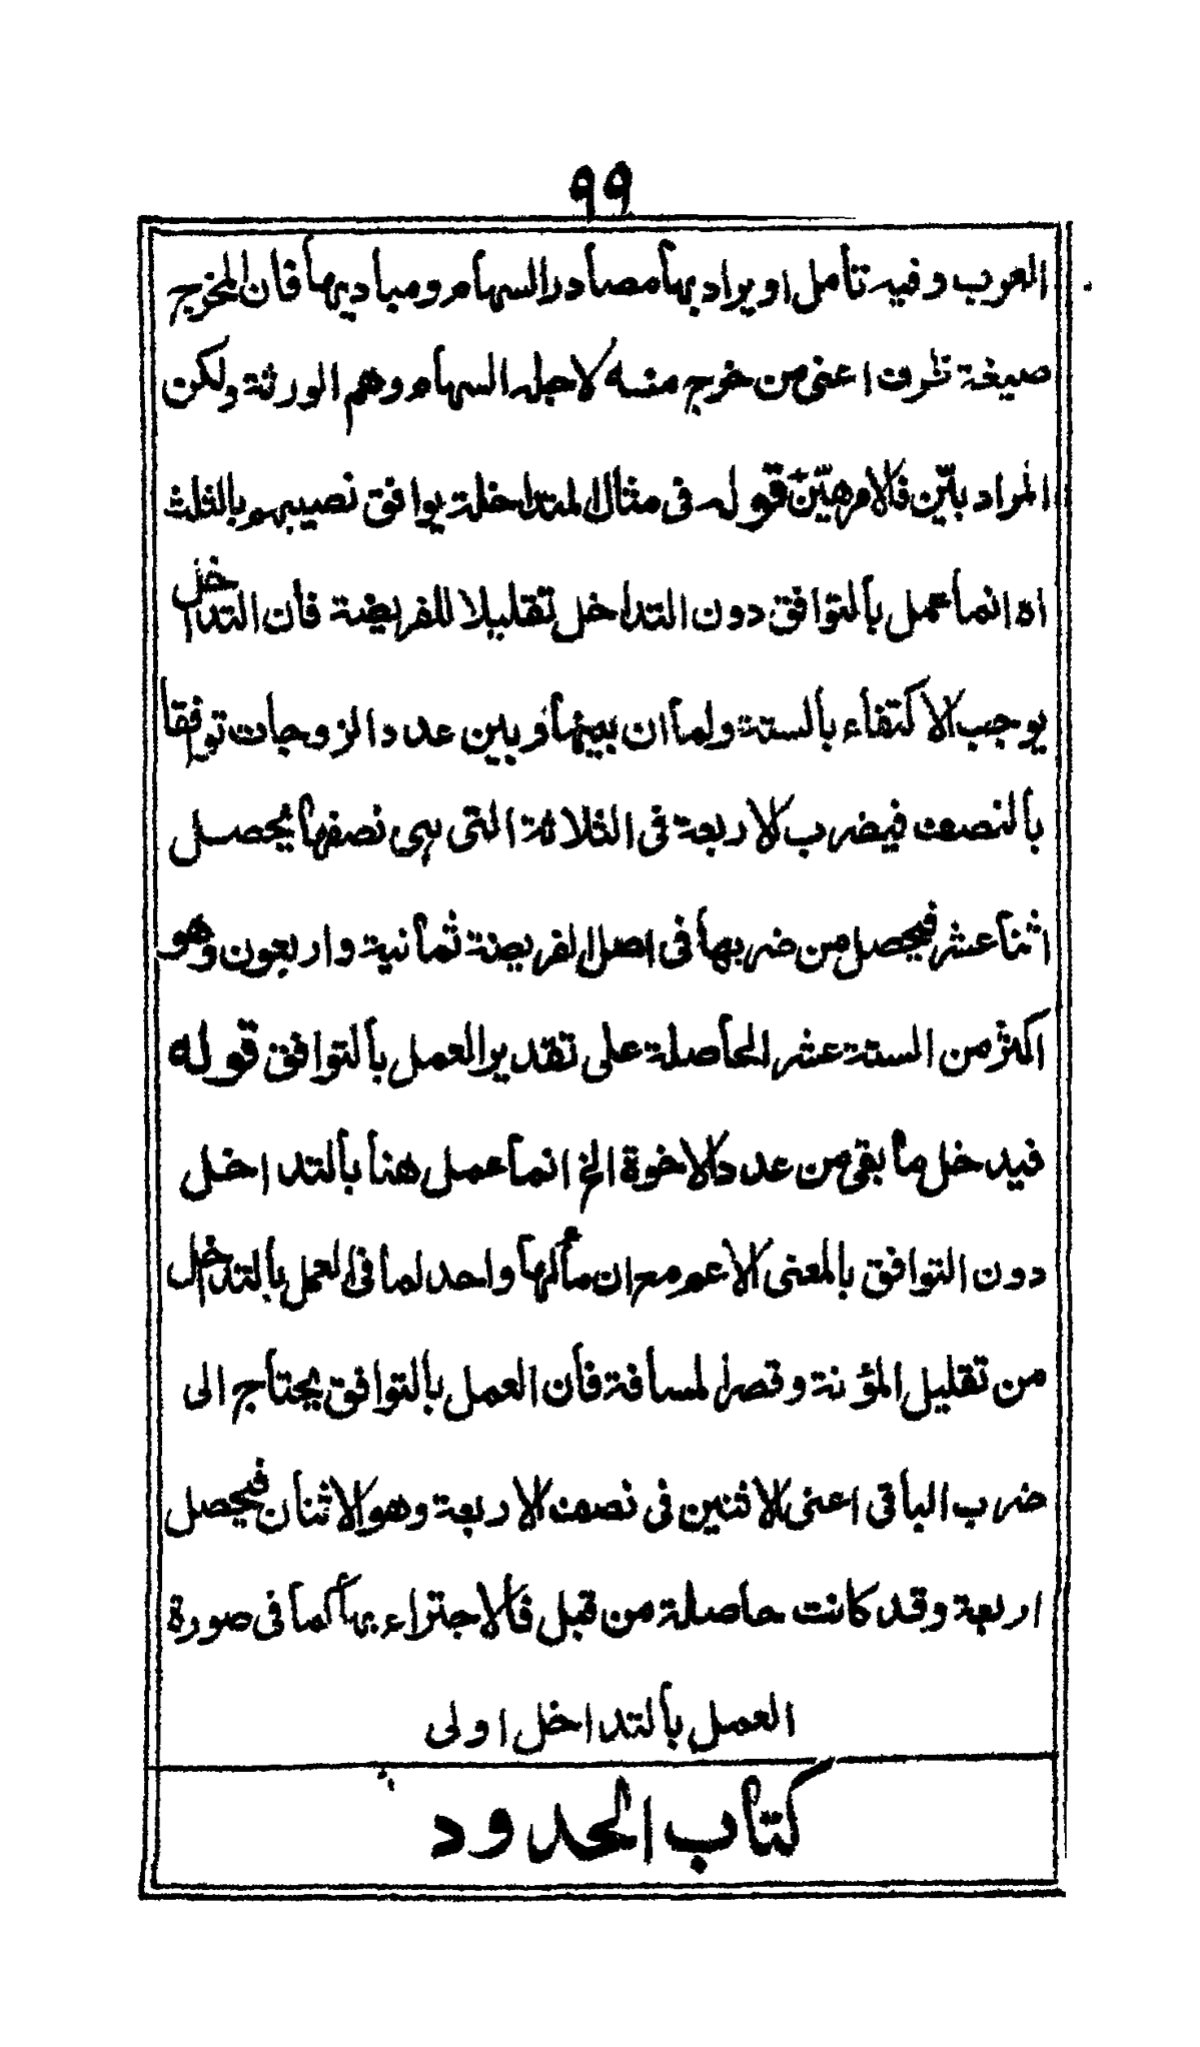 ٩٩
العرب وفيه تأمل او يراد بها مصادر السهام ومباديها فان المخرج
صيغة ظرف اعنى من خرج منه لاجله السهام وهم الورثة ولكن
المراد بيّن فالامر هيّن قوله فى مثال المتداخلة يوافق نصيبهم بالثلث
اه انما عمل بالتوافق دون التداخل تقليلا للفريضة فان التداخل
يوجب الاكتفاء بالستة ولما ان بينهما وبين عدد الزوجات توافقا
بالنصف فيضرب الاربعة فى الثلاثة التى هى نصفها يحصل
اثنا عشر فيحصل من ضربها فى اصل الفريضة ثمانية واربعون وهو
اكثر من الستة عشر الحاصلة على تقدير العمل بالتوافق قوله
فيدخل ما بقى من عدد الاخوة الخ انما عمل هنا بالتداخل
دون التوافق بالمعنى الاعم مع ان مألهما واحد لما فى العمل بالتداخل
من تقليل المؤنة وقصر المسافة فان العمل بالتوافق يحتاج الى
ضرب الباقى اعنى الاثنين فى نصف الاربعة وهو الاثنان فيحصل
اربعة وقد كانت حاصلة من قبل فالاجتراء بها كما فى صورة
العمل بالتداخل اولى
كتاب الحدود